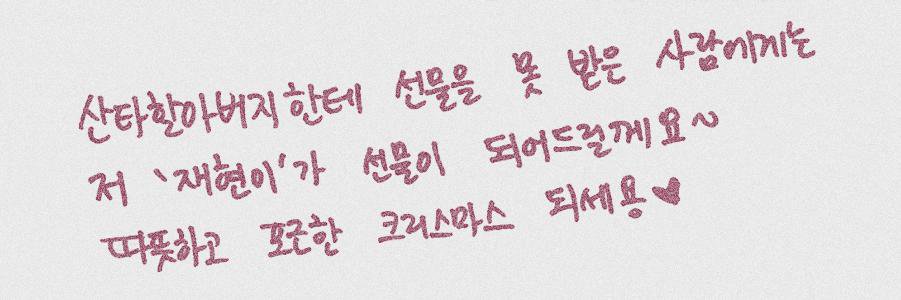 산타할아버지한테 선물을 못 받은 사람에게는
저 '재현이'가 선물이 되어드릴께요~
따뜻하고 포근한 크리스마스 되세용♥